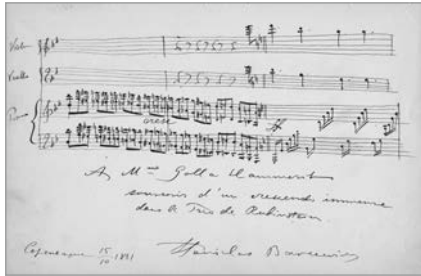 Violon
Vcello
Piano
cresc
ff
À Mme Golla Hammerich
souvenir d'un crescendo immense
dans le Trio de Rubinstein.
Copenhague 15/10 1891
Stanislas Barcewicz